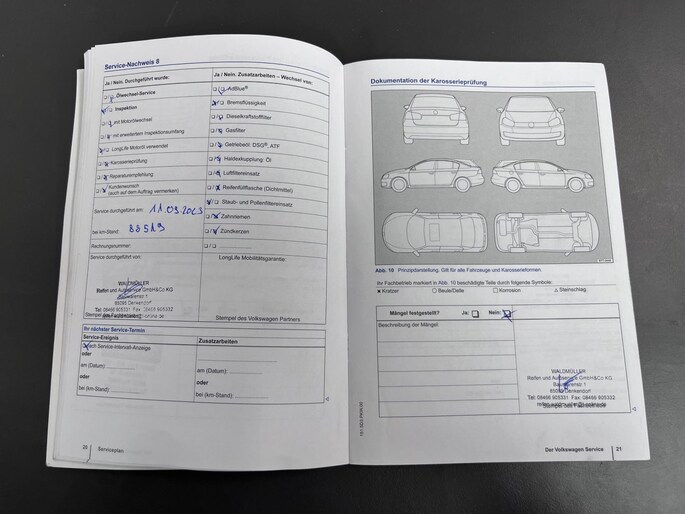 Service-Nachweis 8
Ja / Nein. Durchgeführt wurde:
Ölwechsel-Service
Inspektion
mit Motorölwechsel
mit erweitertem Inspektionsumfang
LongLife Motoröl verwendet
Karosserieprüfung
Reparaturempfehlung
Kundenwunsch
(auch auf dem Auftrag vermerken)
Service durchgeführt am: 11.09.2003
bei km-Stand: 88513
Rechnungsnummer:
Service durchgeführt von:
WALDMÜLLER
Reifen und Autoservice GmbH&Co KG
85095 Denkendorf
Tel: 08466 905331 Fax: 08466 905332
Ja / Nein. Zusatzarbeiten – Wechsel von:
AdBlue®
Bremsflüssigkeit
Dieselkraftstofffilter
Gasfilter
Getriebeöl: DSG®, ATF
Haldexkupplung: Öl
Luftfiltereinsatz
Reifenfüllflasche (Dichtmittel)
Staub- und Pollenfiltereinsatz
Zahnriemen
Zündkerzen
LongLife Mobilitätsgarantie:
Stempel des Volkswagen Partners
Ihr nächster Service-Termin
Service-Ereignis
nach Service-Intervall-Anzeige
oder
am (Datum):
oder
bei (km-Stand):
Zusatzarbeiten
am (Datum):
oder
bei (km-Stand):
20 Serviceplan
Dokumentation der Karosserieprüfung
Abb. 10 Prinzipdarstellung. Gilt für alle Fahrzeuge und Karosserieformen.
Ihr Fachbetrieb markiert in Abb. 10 beschädigte Teile durch folgende Symbole:
Kratzer Beule/Delle Korrosion Steinschlag
Mängel festgestellt? Ja: Nein:
Beschreibung der Mängel:
WALDMÜLLER
Reifen und Autoservice GmbH&Co KG
85095 Denkendorf
Tel: 08466 905331 Fax: 08466 905332
Stempel des Fachbetriebs
Der Volkswagen Service 21